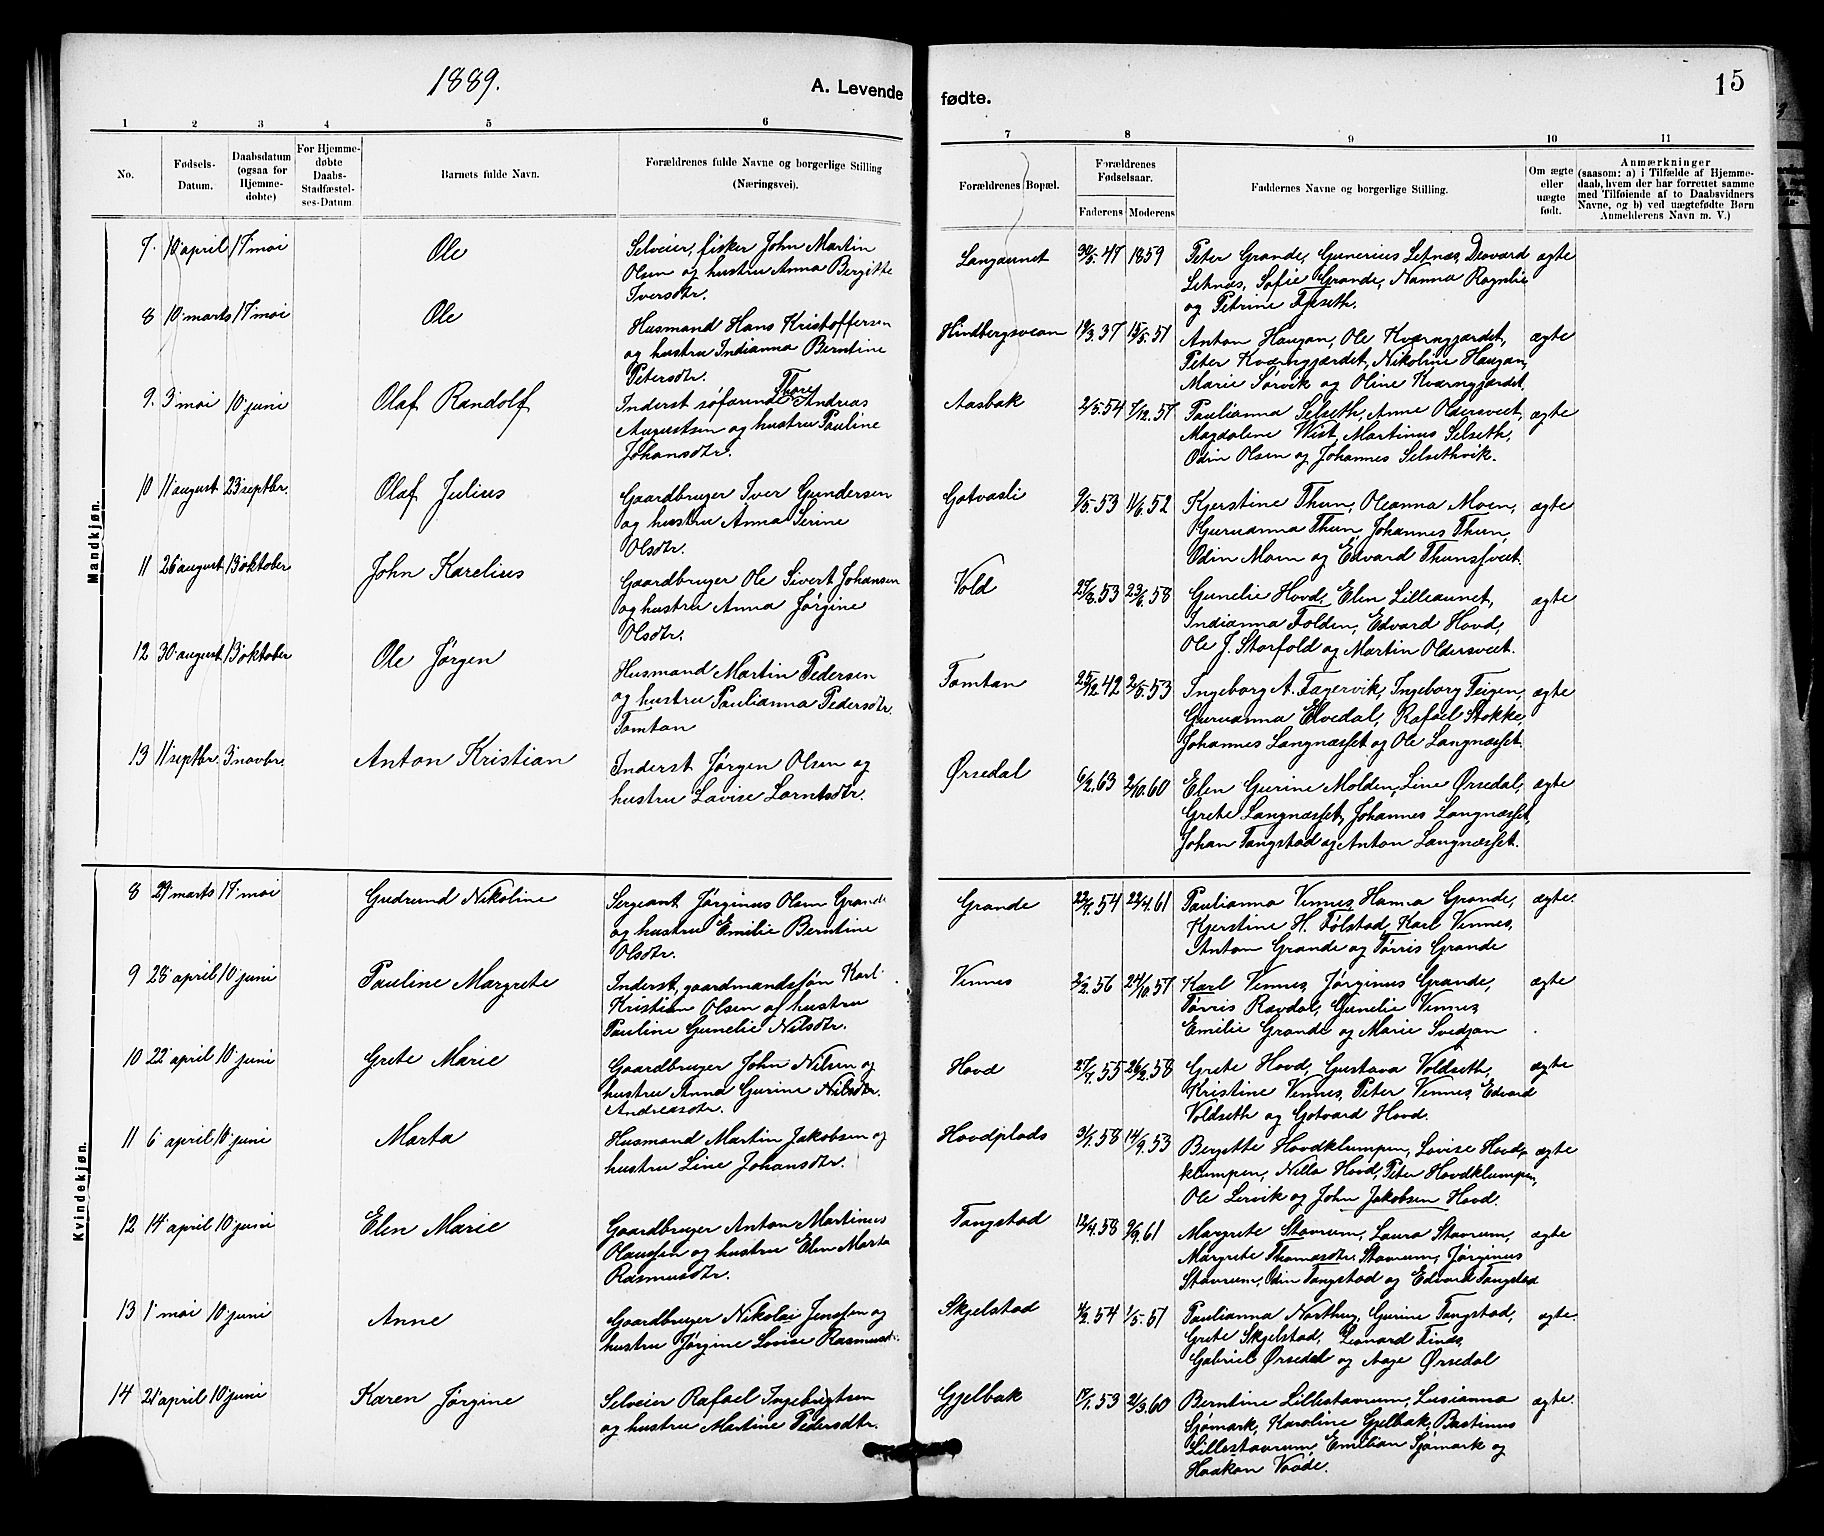 1889.
A. Levende
fødte.
15
1 2 3 4 5 6
7 8 9 10 11
No.
Fødsels-
Datum.
Daabsdatum
(ogsaa for
Hjemme-
døbte)
For Hjemme-
døbte
Daabs-
Stadfæstel-
ses-Datum
Barnets fulde Navn.
Forældrenes fulde Navne og borgerlige Stilling
(Næringsvei).
Forældrenes Bopæl.
Forældrenes
Fødselsaar.
Faderens Moderens
Faddernes Navne og borgerlige Stilling.
Om ægte
eller
uægte
født.
Anmærkninger
(saasom: a) i Tilfælde af Hjemme-
daab, hvem der har forrettet samme
med Tilføiende af to Daabsvidners
Navne, og b) ved uægtefødte Børn
Anmelderens Navn m. V.)
Mandkjøn.
7. 10 april 17 mai Ole
Selveier, fisker John Martin
Olsen og hustru Anna Bergitte
Iversdtr.
Langaunet 30/5.47 1859
Peter Grande, Gunerius Letnæs, Devard
Letnæs, Sofie Grande, Nanna Rognlie
og Petrine Fjeseth.
ægte
8 10 marts 17 mai Ole
Husmand Hans Kristoffersen
og hustru Indianna Berntine
Petersdtr.
Hindbergsvean 19/3.37 15/5.51
Anton Haugan, Ole Kværngjærdet,
Peter Kværngjærdet, Nikoline Haugan,
Marie Sørvik og Oline Kværngjærdet.
ægte
9. 3 mai 10 juni Olaf Randolf
Thore
Inderst søfarende Andreas
Augustsen og hustru Pauline
Johansdtr.
Aasbak 2/5.54 7/12.57
Paulianna Selseth, Anne Oldersveet,
Magdalene Wist, Martinus Selseth,
Odin Olsen og Johannes Selsethvik.
ægte
10 11 august 23 septbr. Olaf Julius
Gaardbruger Iver Gundersen
og hustru Anna Serine
Olsdtr.
Gotvasli 9/5.53 11/6.52
Kjerstine Thun, Oleanna Moen,
Guruanna Thun, Johannes Thun,
Odin Moen og Edvard Thunsfveet.
ægte
11 26 august 13 oktober John Karelius
Gaardbruger Ole Sivert Johansen
og hustru Anna Jørgine
Olsdtr.
Vold 27/8.53 23/6.58
Gunelie Hovd, Elen Lilleaunet,
Indianna Folden, Edvard Hovd,
Ole J. Storfold og Martin Oldersveet.
ægte
12 30 august 13 oktober Ole Jørgen
Husmand Martin Pedersen
og hustru Paulianna Pedersdtr.
Tomtan
Tomtan 25/12.42 2/5.53
Ingeborg A. Fagervik, Ingeborg Teigen,
Guruanna Elvedal, Rafael Stokke,
Johannes Langnæsset og Ole Langnæsset.
ægte
13 11 septbr. 3 novbr. Anton Kristian
Inderst Jørgen Olsen og
hustru Lovise Lorntsdtr.
Ørsedal 6/2.63 2/10.60
Elen Gurine Molden, Line Ørsedal,
Grete Langnæsset, Johannes Langnæsset,
Johan Tangstad og Anton Langnæsset.
ægte
Kvindekjøn.
8 29 marts 17 mai Gudrund Nikoline
Sergeant Jørginus Olsen Grande
og hustru Emilie Berntine
Olsdtr.
Grande 22/9.54 22/4.61
Paulianna Vennes, Hanna Grande,
Kjerstine H. Følstad, Karl Vennes,
Anton Grande og Tørris Grande
ægte.
9 28 april 10 juni Pauline Margrete
Inderst, gaardmandssøn Karl
Kristian Olsen af hustru
Pauline Gunelie Nilsdtr.
Vennes 2/2.56 24/10.57
Karl Vennes, Jørginus Grande,
Tørris Rævdal, Gunelie Vennes,
Emilie Grande og Marie Svedjan
ægte
10 22 april 10 juni Grete Marie
Gaardbruger John Nilsen og
hustru Anna Gurine Nilsdtr.
Andreasdtr.
Hovd 27/7.55 26/2.58
Grete Hovd, Gustava Voldseth,
Kristine Vennes, Peter Vennes, Edvard
Voldseth og Gotvard Hovd.
ægte
11 6 april 10 juni Marta
Husmand Martin Jakobsen og
hustru Line Johansdtr.
Hovdplads 31/7.58 14/9.53
Bergitte Hovdklumpen, Lovise Hovd-
klumpen, Nella Hovd, Peter Hovdklumpen,
Ole Lervik og John Jakobsen Hovd.
ægte
12 14 april 10 juni Elen Marie
Gaardbruger Anton Martinus
Olaussen og hustru Elen Marta
Rasmusdtr.
Tangstad 12/4.58 9/9.61
Margrete Stavrum, Laura Stavrum,
Margrete Thomasdtr. Stavrum, Jørginus
Stavrum, Odin Tangstad og Edvard Tangstad
ægte
13 1 mai 10 juni Anne
Gaardbruger Nikolai Jenssen og
hustru Jørgine Lovise Rasmusdtr.
Skjelstad 4/2.54 1/5.61
Paulianna Northug, Gurine Tangstad,
Grete Skjelstad, Leonard Finds,
Gabriel Ørsedal og Aage Ørsedal
ægte.
14 21 april 10 juni Karen Jørgine
Selveier Rafael Ingebrigtsen
og hustru Martine Pedersdtr.
Gjelbak 17/1.53 21/3.60
Berntine Lillestavrum, Lusianna
Sjømark, Karoline Gjelbak, Bastinus
Lillestavrum, Emilian Sjømark og
Haakon Vaade.
ægte.